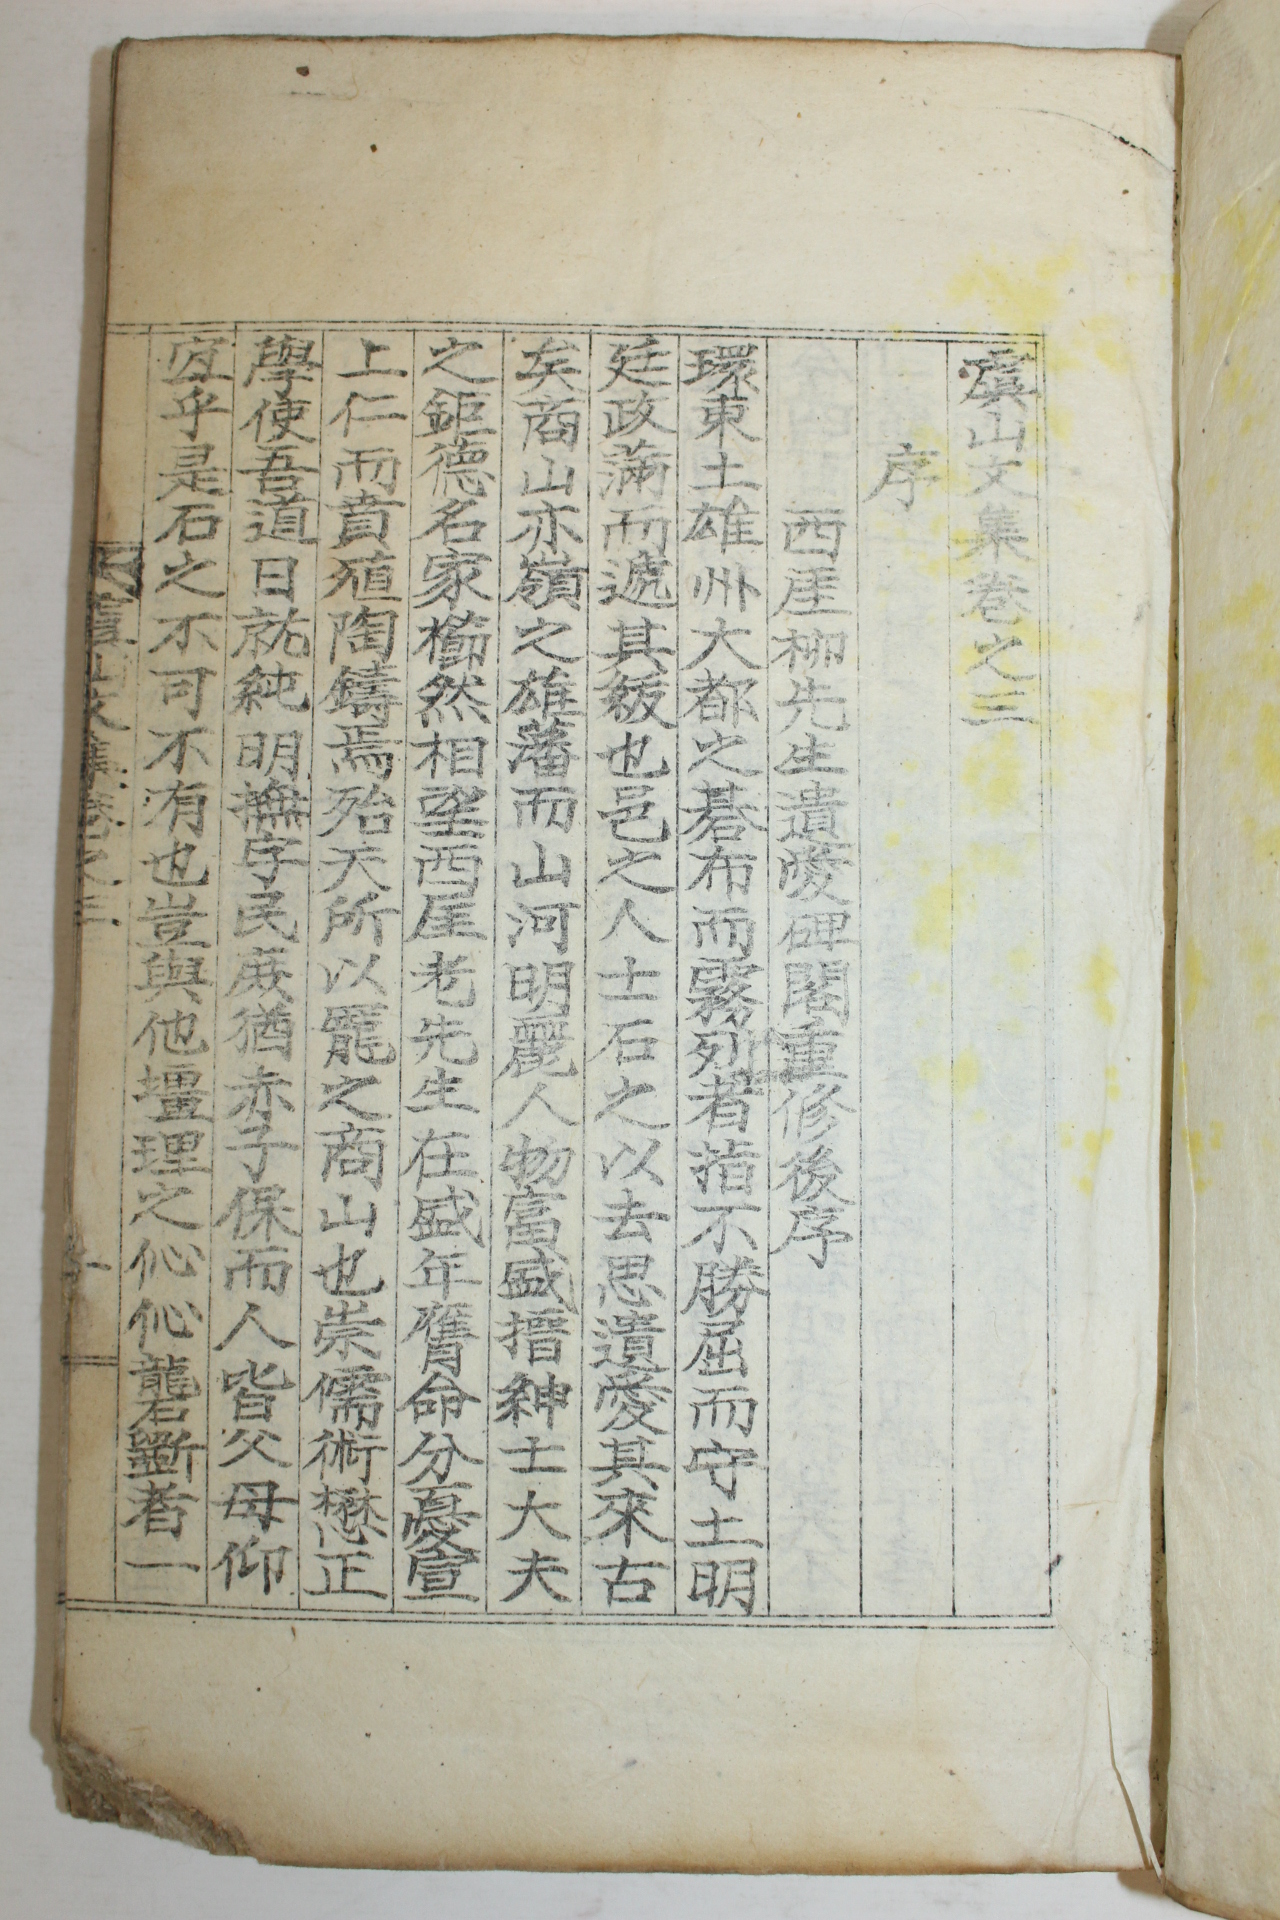 虞山文集卷之三
序
西厓柳先生遺愛碑閣重修後序
環東土雄州大都之碁布而霧列者指不勝屈而守土明
廷政滿而遞其級也邑之人士石之以去思遺愛其來古
矣商山亦嶺之雄藩而山河明麗人物富盛搢紳士大夫
之鉅德名家櫛然相望西厓老先生在盛年膺命分憂宣
上仁而賁殖陶鑄焉殆天所以寵之商山也崇儒術懋正
學使吾道日就純明撫字民庶猶赤子保而人皆父母仰
宜乎是石之不可不有也豈與他壃理之伈伈礱斵者一
虞山文集卷之三
一